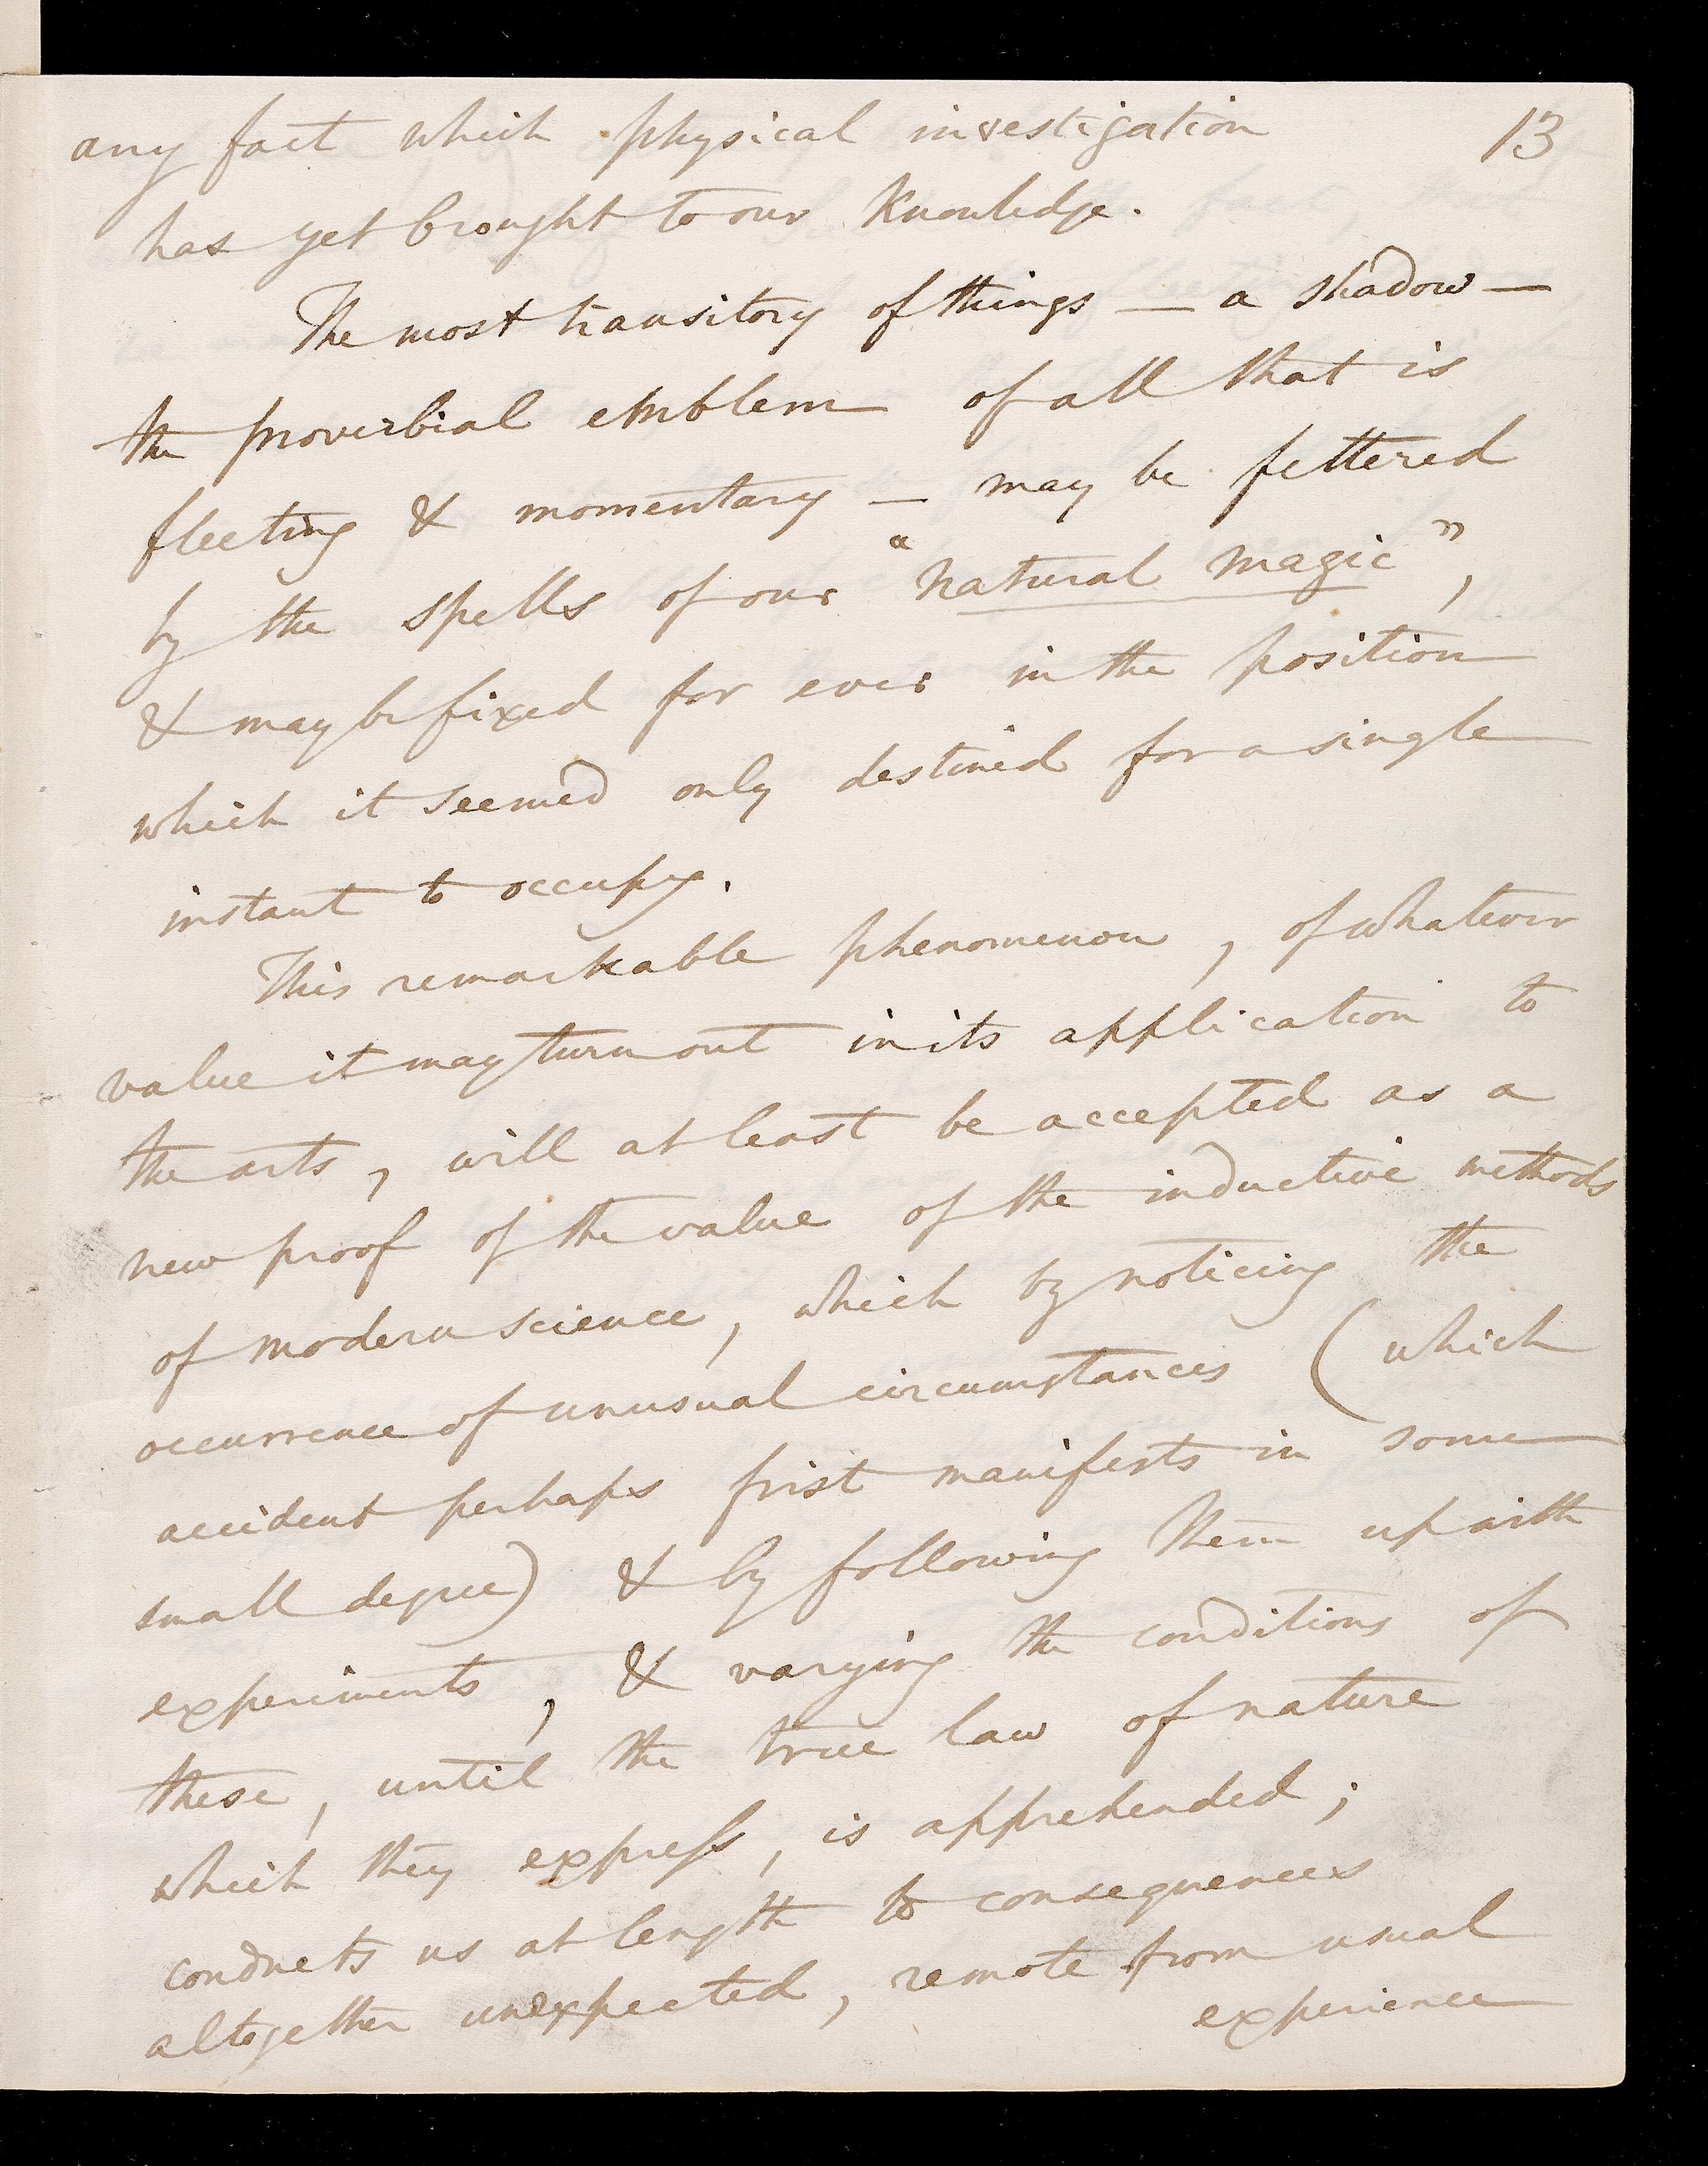 any fact which physical investigation 13
has yet brought to our Knowledge.
The most transitory of things — a shadow —
the proverbial emblem of all that is
fleeting & momentary — may be fettered
by the spells of our "natural magic",
& may be fixed for ever in the position
which it seemed only destined for a single
instant to occupy.
This remarkable phenomenon, of whatever
value it may turn out in its application to
the arts, will at least be accepted as a
new proof of the value of the inductive methods
of modern science, which by noticing the
occurrence of unusual circumstances (which
accident perhaps first manifests in some
small degree) & by following them up with
experiments, & varying the conditions of
these, until the true law of nature
which they express, is apprehended;
conducts us at length to consequences
altogether unexpected, remote from usual
experience